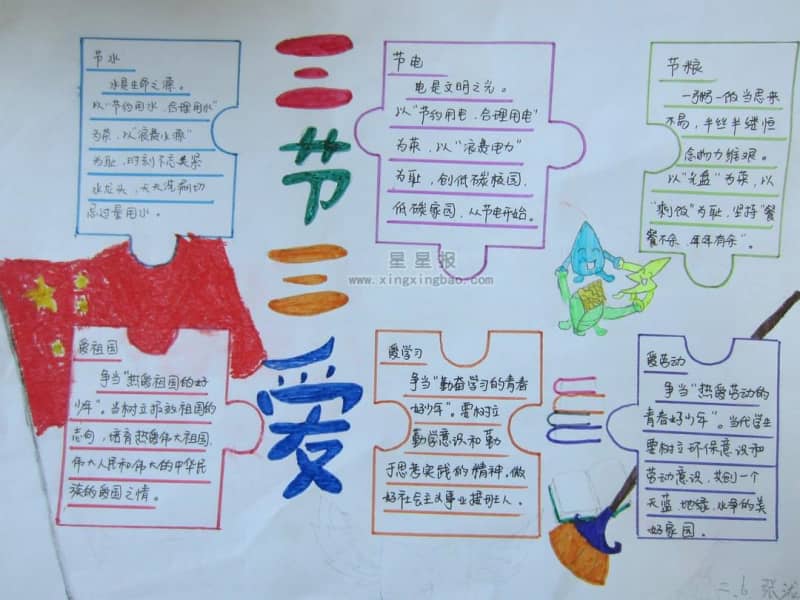 节水
水是生命之源。
以"节约用水，合理用水"
为荣，以"浪费水源"
为耻，时刻不忘关紧
水龙头，天天洗刷切
忌过量用水。
三
节
三
爱
节电
电是文明之光。
以"节约用电，合理用电"
为荣，以"浪费电力"
为耻，创低碳校园，
低碳家园，从节电开始。
节粮
一粥一饭当思来
不易，半丝半缕恒
念物力维艰。
以"光盘"为荣，以
"剩饭"为耻，坚持"餐
餐不余，年年有余"。
星星报
www.xingxingbao.com
爱祖国
争当"热爱祖国的好
少年"。当树立报效祖国的
志向，培育热爱伟大祖国，
伟大人民和伟大的中华民
族的爱国之情。
爱学习
争当"勤奋学习的青春
好少年"。要树立
勤学意识和勤
于思考实践的精神，做
好社会主义事业接班人。
爱劳动
争当"热爱劳动的
青春好少年"。当代学生
要树立环保意识和
劳动意识，共创一个
天蓝、地绿、水净的美
好家园。
二.6 张